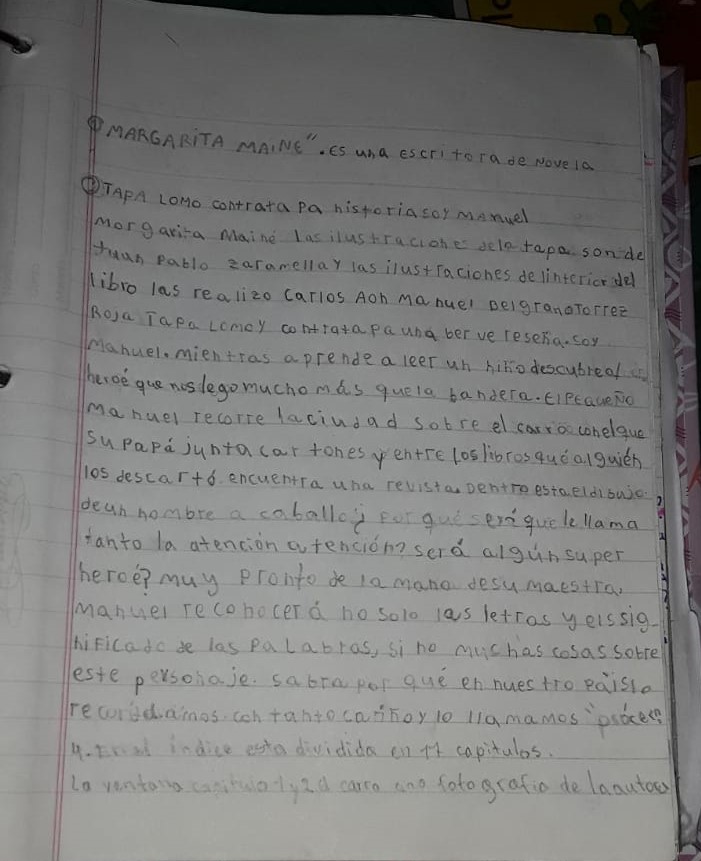 ① MARGARITA MAINE". Es una escritora de Novela
② TAPA LOMO contrata Pa historia soy MANuel
Morgarita Mainé Las ilustraciones dela tapa son de
Juan Pablo zaramella y las ilustraciones de linterior del
libro las realizo Carlos Aon Manuel BelgranoTorrez
Roja TaPa Lomo y contrata pa una ber ve reseña. soy
Manuel. mientras aprende a leer un niño descubre al
heroé que nos lego mucho más que la bandera. El PEqueÑo
Manuel recorre la ciudad sobre el carro conelque
su papá junta cartones y entre los libros qué alguién
los descartó encuentra una revista. Dentro esta el dibujo
de un hombre a caballo ¿ Por qué será que le llama
tanto la atención atención? será algún super
heroé? muy Pronto de la mano desu maestra,
Manuel reconocerá no solo las letras y el sig_
nificado de las Palabras, si no muchas cosas sobre
este personaje. sabra por qué en nuestro País lo
recordamos con tanto cariño y lo llamamos "prócer"?
4. En el índice esta dividida en 11 capitulos.
La ventana capitulo 1 y 2 carro una fotografia de la autora